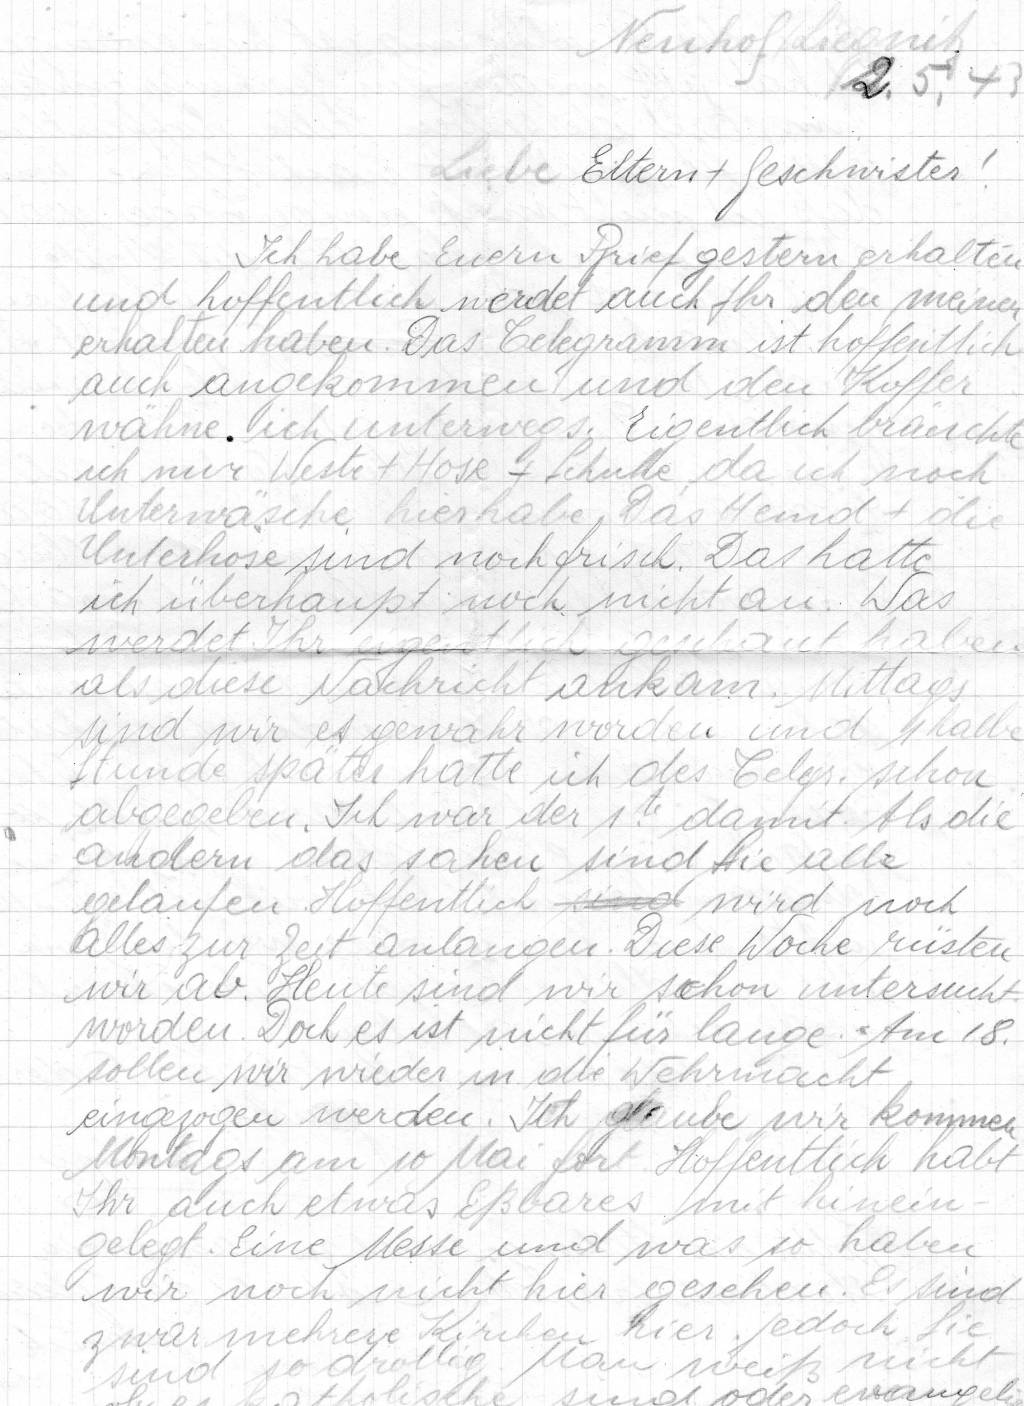 Neuhof/Liegnitz
2. 5. 43
Liebe Eltern + Geschwister!
Ich habe Euern Brief gestern erhalten
und hoffentlich werdet auch Ihr den meinen
erhalten haben. Das Telegramm ist hoffentlich
auch angekommen und den Koffer
wähne ich unterwegs. Eigentlich bräuchte
ich nur Weste + Hose + Schuhe, da ich noch
Unterwäsche hierhabe. Das Hemd + die
Unterhose sind noch frisch. Das hatte
ich überhaupt noch nicht an. Was
werdet Ihr eigentlich geschaut haben
als diese Nachricht ankam. Mittags
sind wir es gewahr worden und 1 halbe
Stunde später hatte ich des Telgr. schon
abgegeben. Ich war der 1.te damit. Als die
andern das sahen sind sie alle
gelaufen. Hoffentlich sind wird noch
alles zur Zeit anlangen. Diese Woche rüsten
wir ab. Heute sind wir schon untersucht
worden. Doch es ist nicht für lange. Am 18.
sollen wir wieder in die Wehrmacht
eingezogen werden. Ich glaube wir kommen
Montags am 10 Mai fort. Hoffentlich habt
Ihr auch etwas Eßbares mit hinein-
gelegt. Eine Messe und was so haben
wir noch nicht hier gesehen. Es sind
zwar mehrere Kirchen hier, jedoch sie
sind so drollig. Man weiß nicht
ob es katholische sind oder evangelis